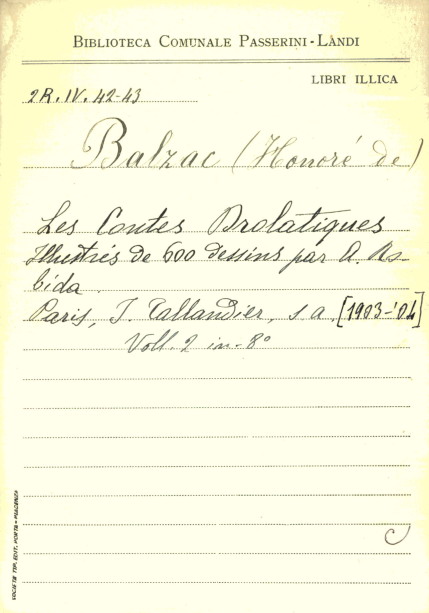 BIBLIOTECA COMUNALE PASSERINI-LANDI
LIBRI ILLICA
2R.IV.42-43
Balzac (Honoré de)
Les Contes Drolatiques
Illustrés de 600 dessins par A. Ro-
bida.
Paris, J. Tallandier, s a. [1903-'04]
Voll. 2 in-8°
SOCIETÀ TIP. EDIT. PORTA - PIACENZA